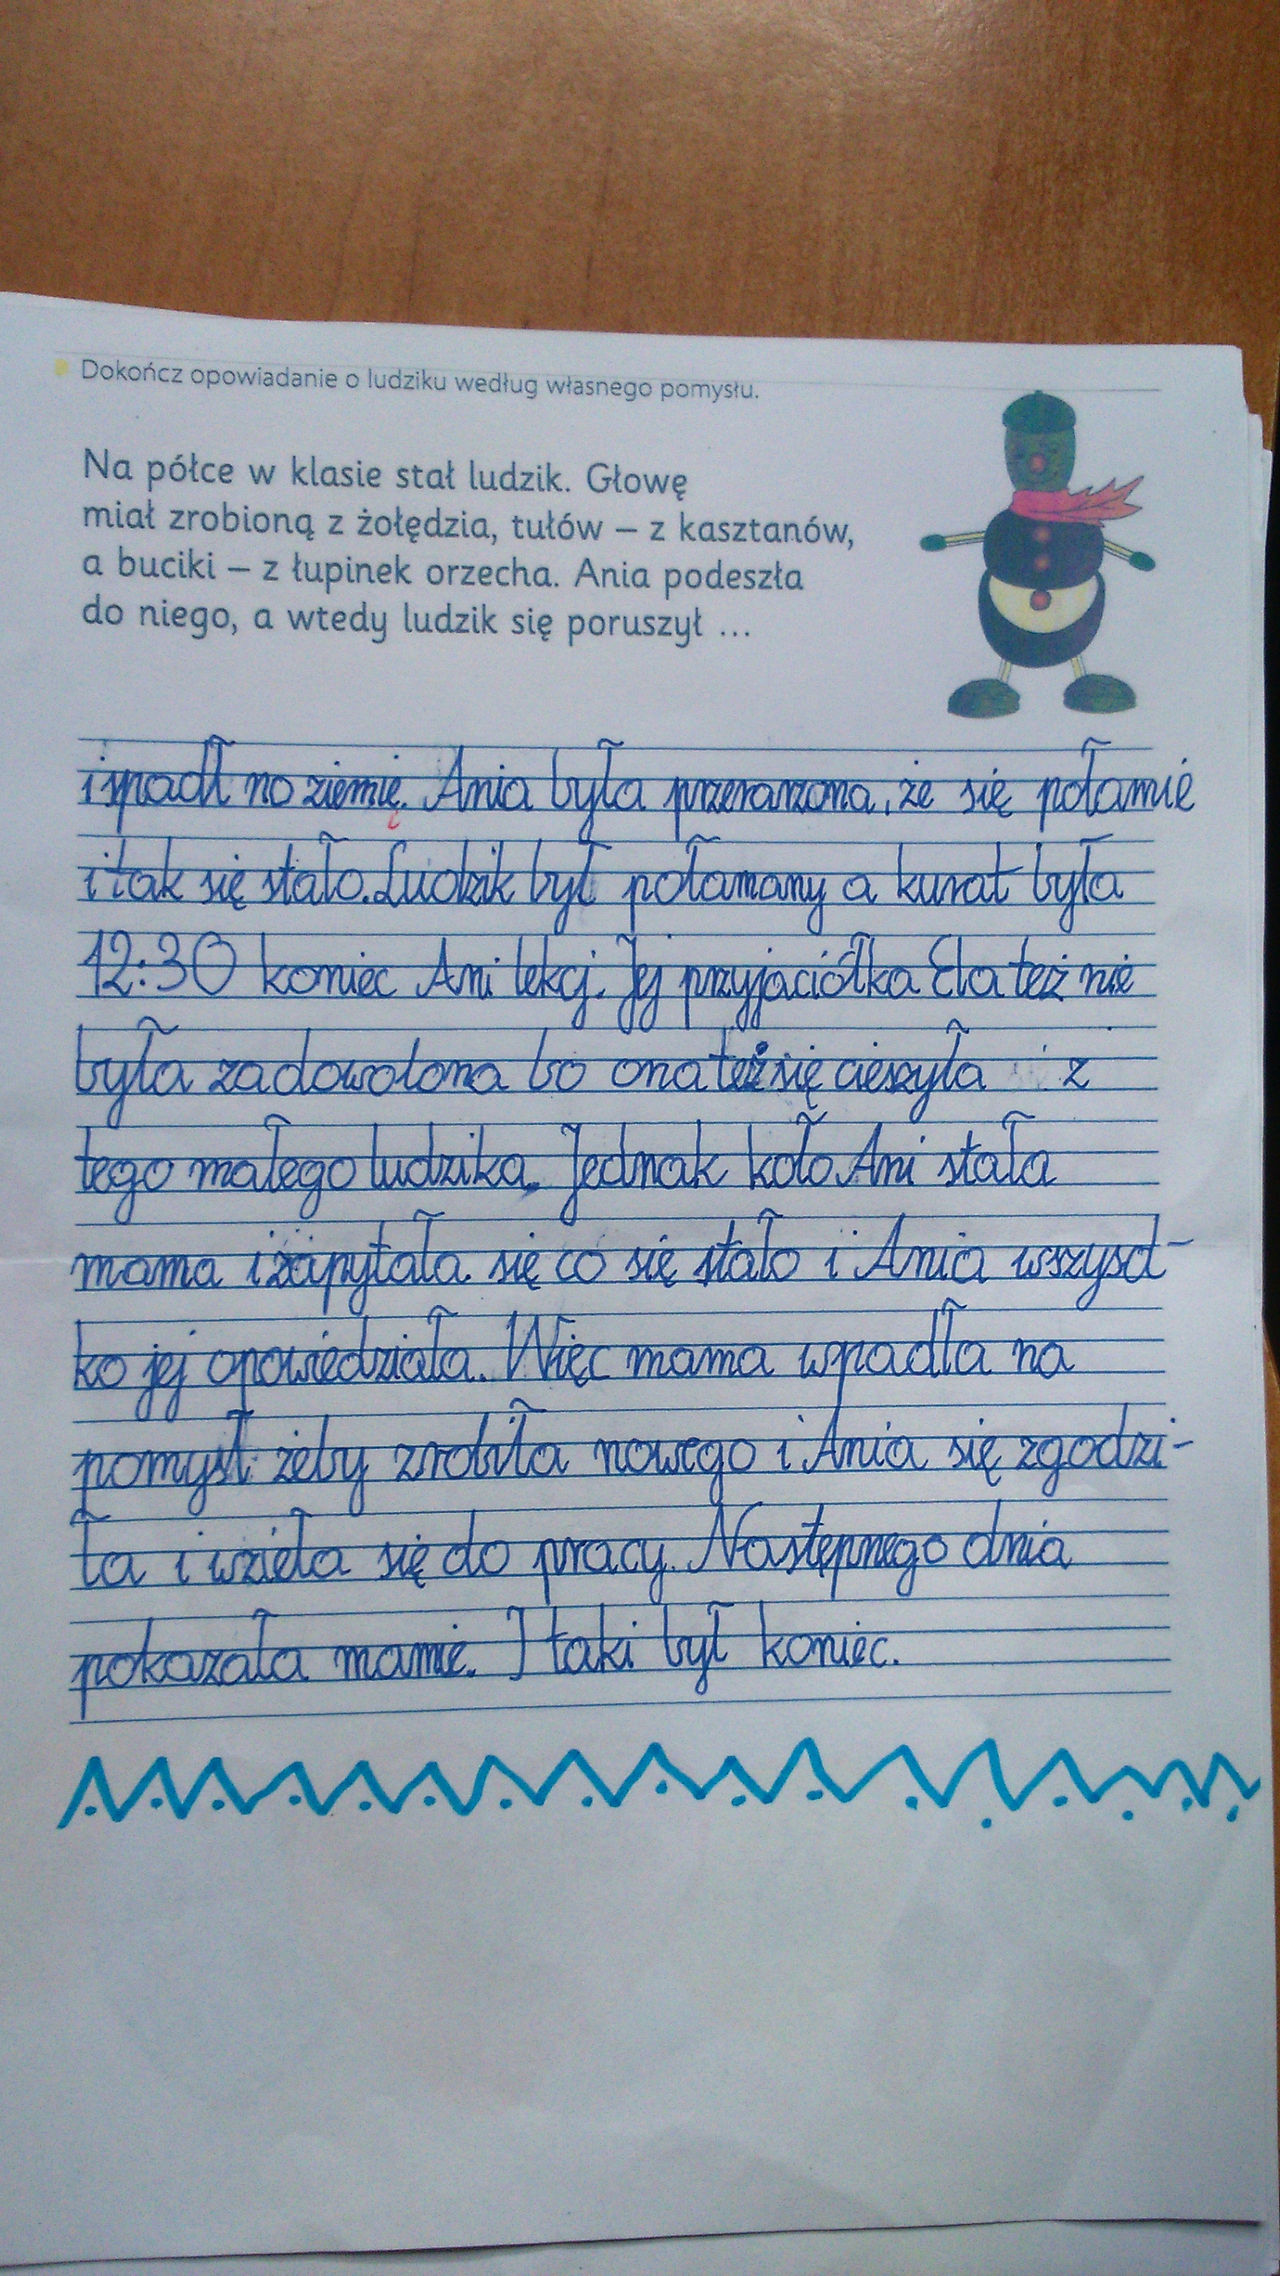 Dokończ opowiadanie o ludziku według własnego pomysłu.
Na półce w klasie stał ludzik. Głowę
miał zrobioną z żołędzia, tułów – z kasztanów,
a buciki – z łupinek orzecha. Ania podeszła
do niego, a wtedy ludzik się poruszył ...
i spadł na ziemię. Ania była przerarzona, że się połamie
i tak się stało. Ludzik był połamany a kurat była
12:30 koniec Ani lekcj. Jej przyjaciółka Ela też nie
była zadowolona bo ona też się cieszyła z
tego małego ludzika. Jednak koło Ani stała
mama i zapytała się co się stało i Ania wszysd-
ko jej opowiedziała. Więc mama wpadła na
pomysł żeby zrobiła nowego i Ania się zgodzi-
ła i wzieła się do pracy. Następnego dnia
pokazała mamie. I taki był koniec.